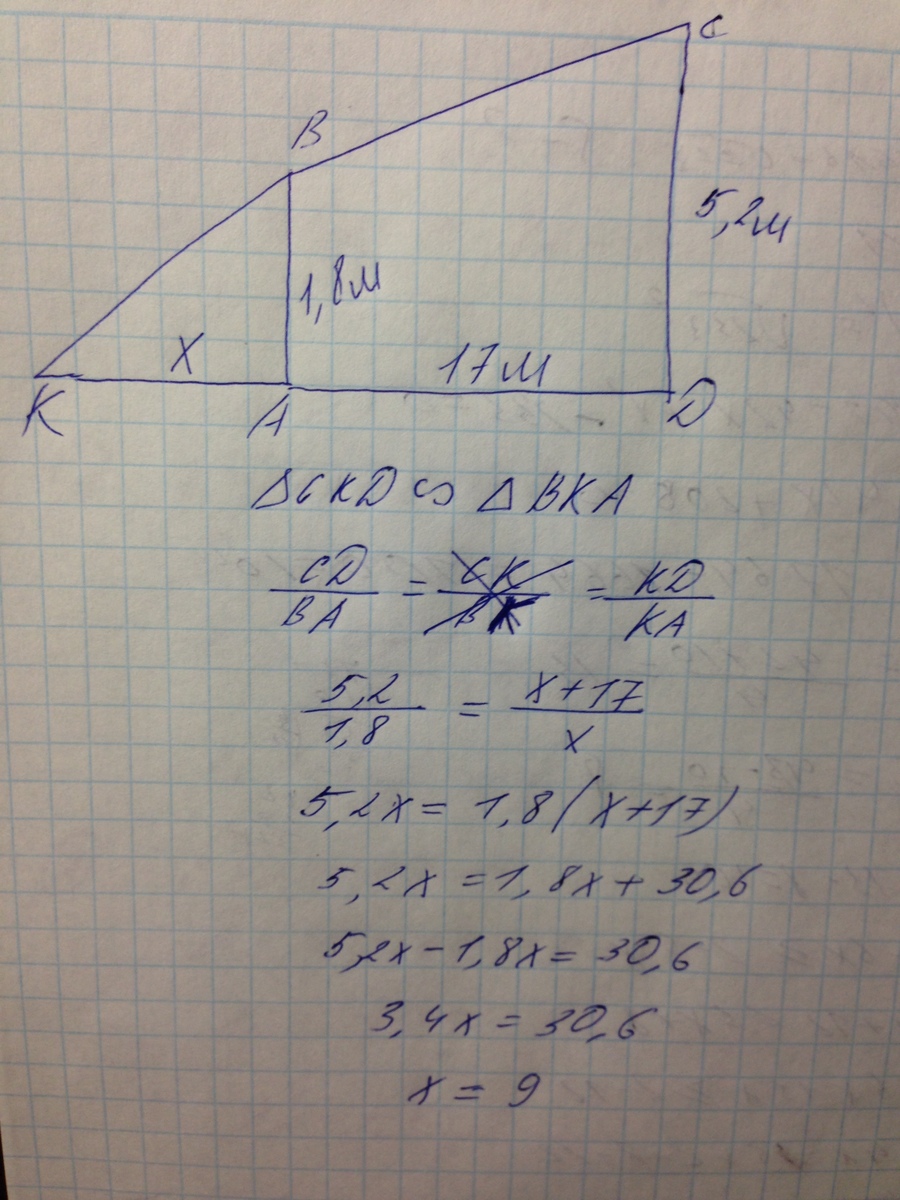 C
B
5,2м
1,8м
X
17м
K
A
D
△CKD ∽ △BKA
CD/BA = CK/BK = KD/KA
5,2/1,8 = x+17/x
5,2x = 1,8(x+17)
5,2x = 1,8x + 30,6
5,2x - 1,8x = 30,6
3,4x = 30,6
x = 9